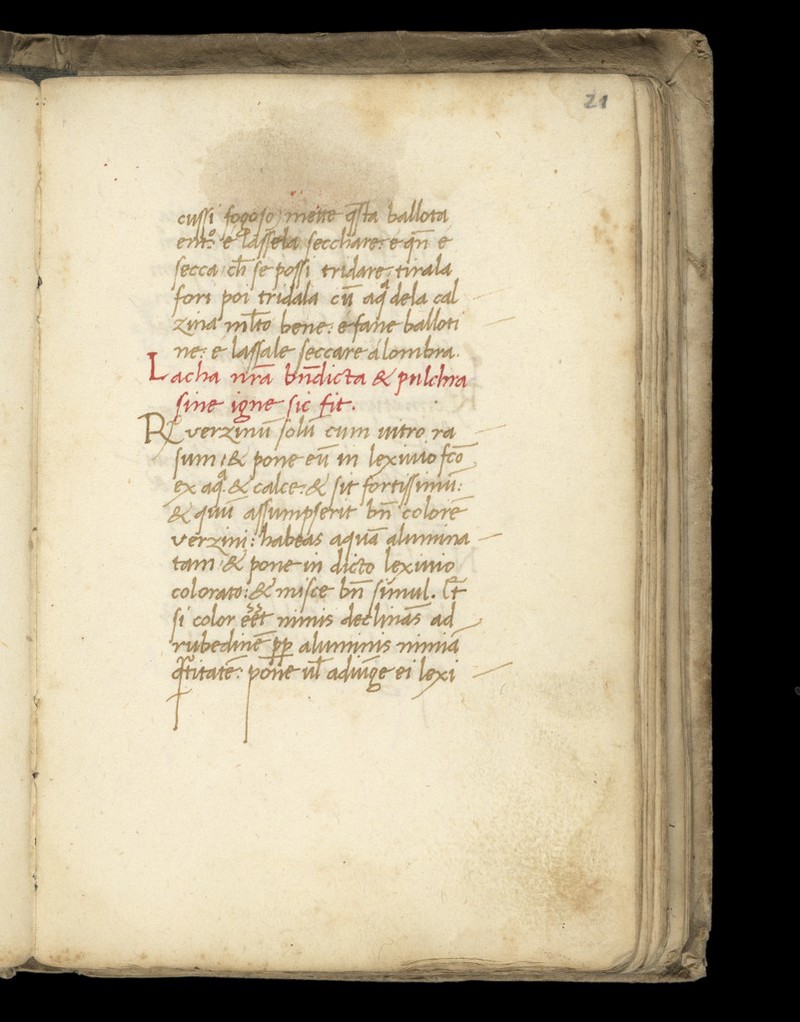 21
cussi fogoso) mette q̄sta ballota
entº: e lassela secchare: e qn̄ e
secca ch̄ se possi tridare: tirala
fori poi tridala cū aqᵃ dela cal
zina ml̄to bene: e fane balloti
ne: e lassale seccare alombra.
Lacha nr̄a bn̄dicta & pulchra
sine igne sic fit.
verzinū solū cum uitro ra
sum: & pone eū in lexiuio fc̄o
ex aqᵃ & calce: & sit fortissimū:
& quū assumpserit bn̄ colorē
verzini: habeas aquā alumina
tam & pone in dicto lexiuio
colorato: & misce bn̄ simul. Et
si color eēt nimis declinās ad
rubedinē pp̄ aluminis nimiā
q̄titatē: pone ul̄ adiūge ei lexi